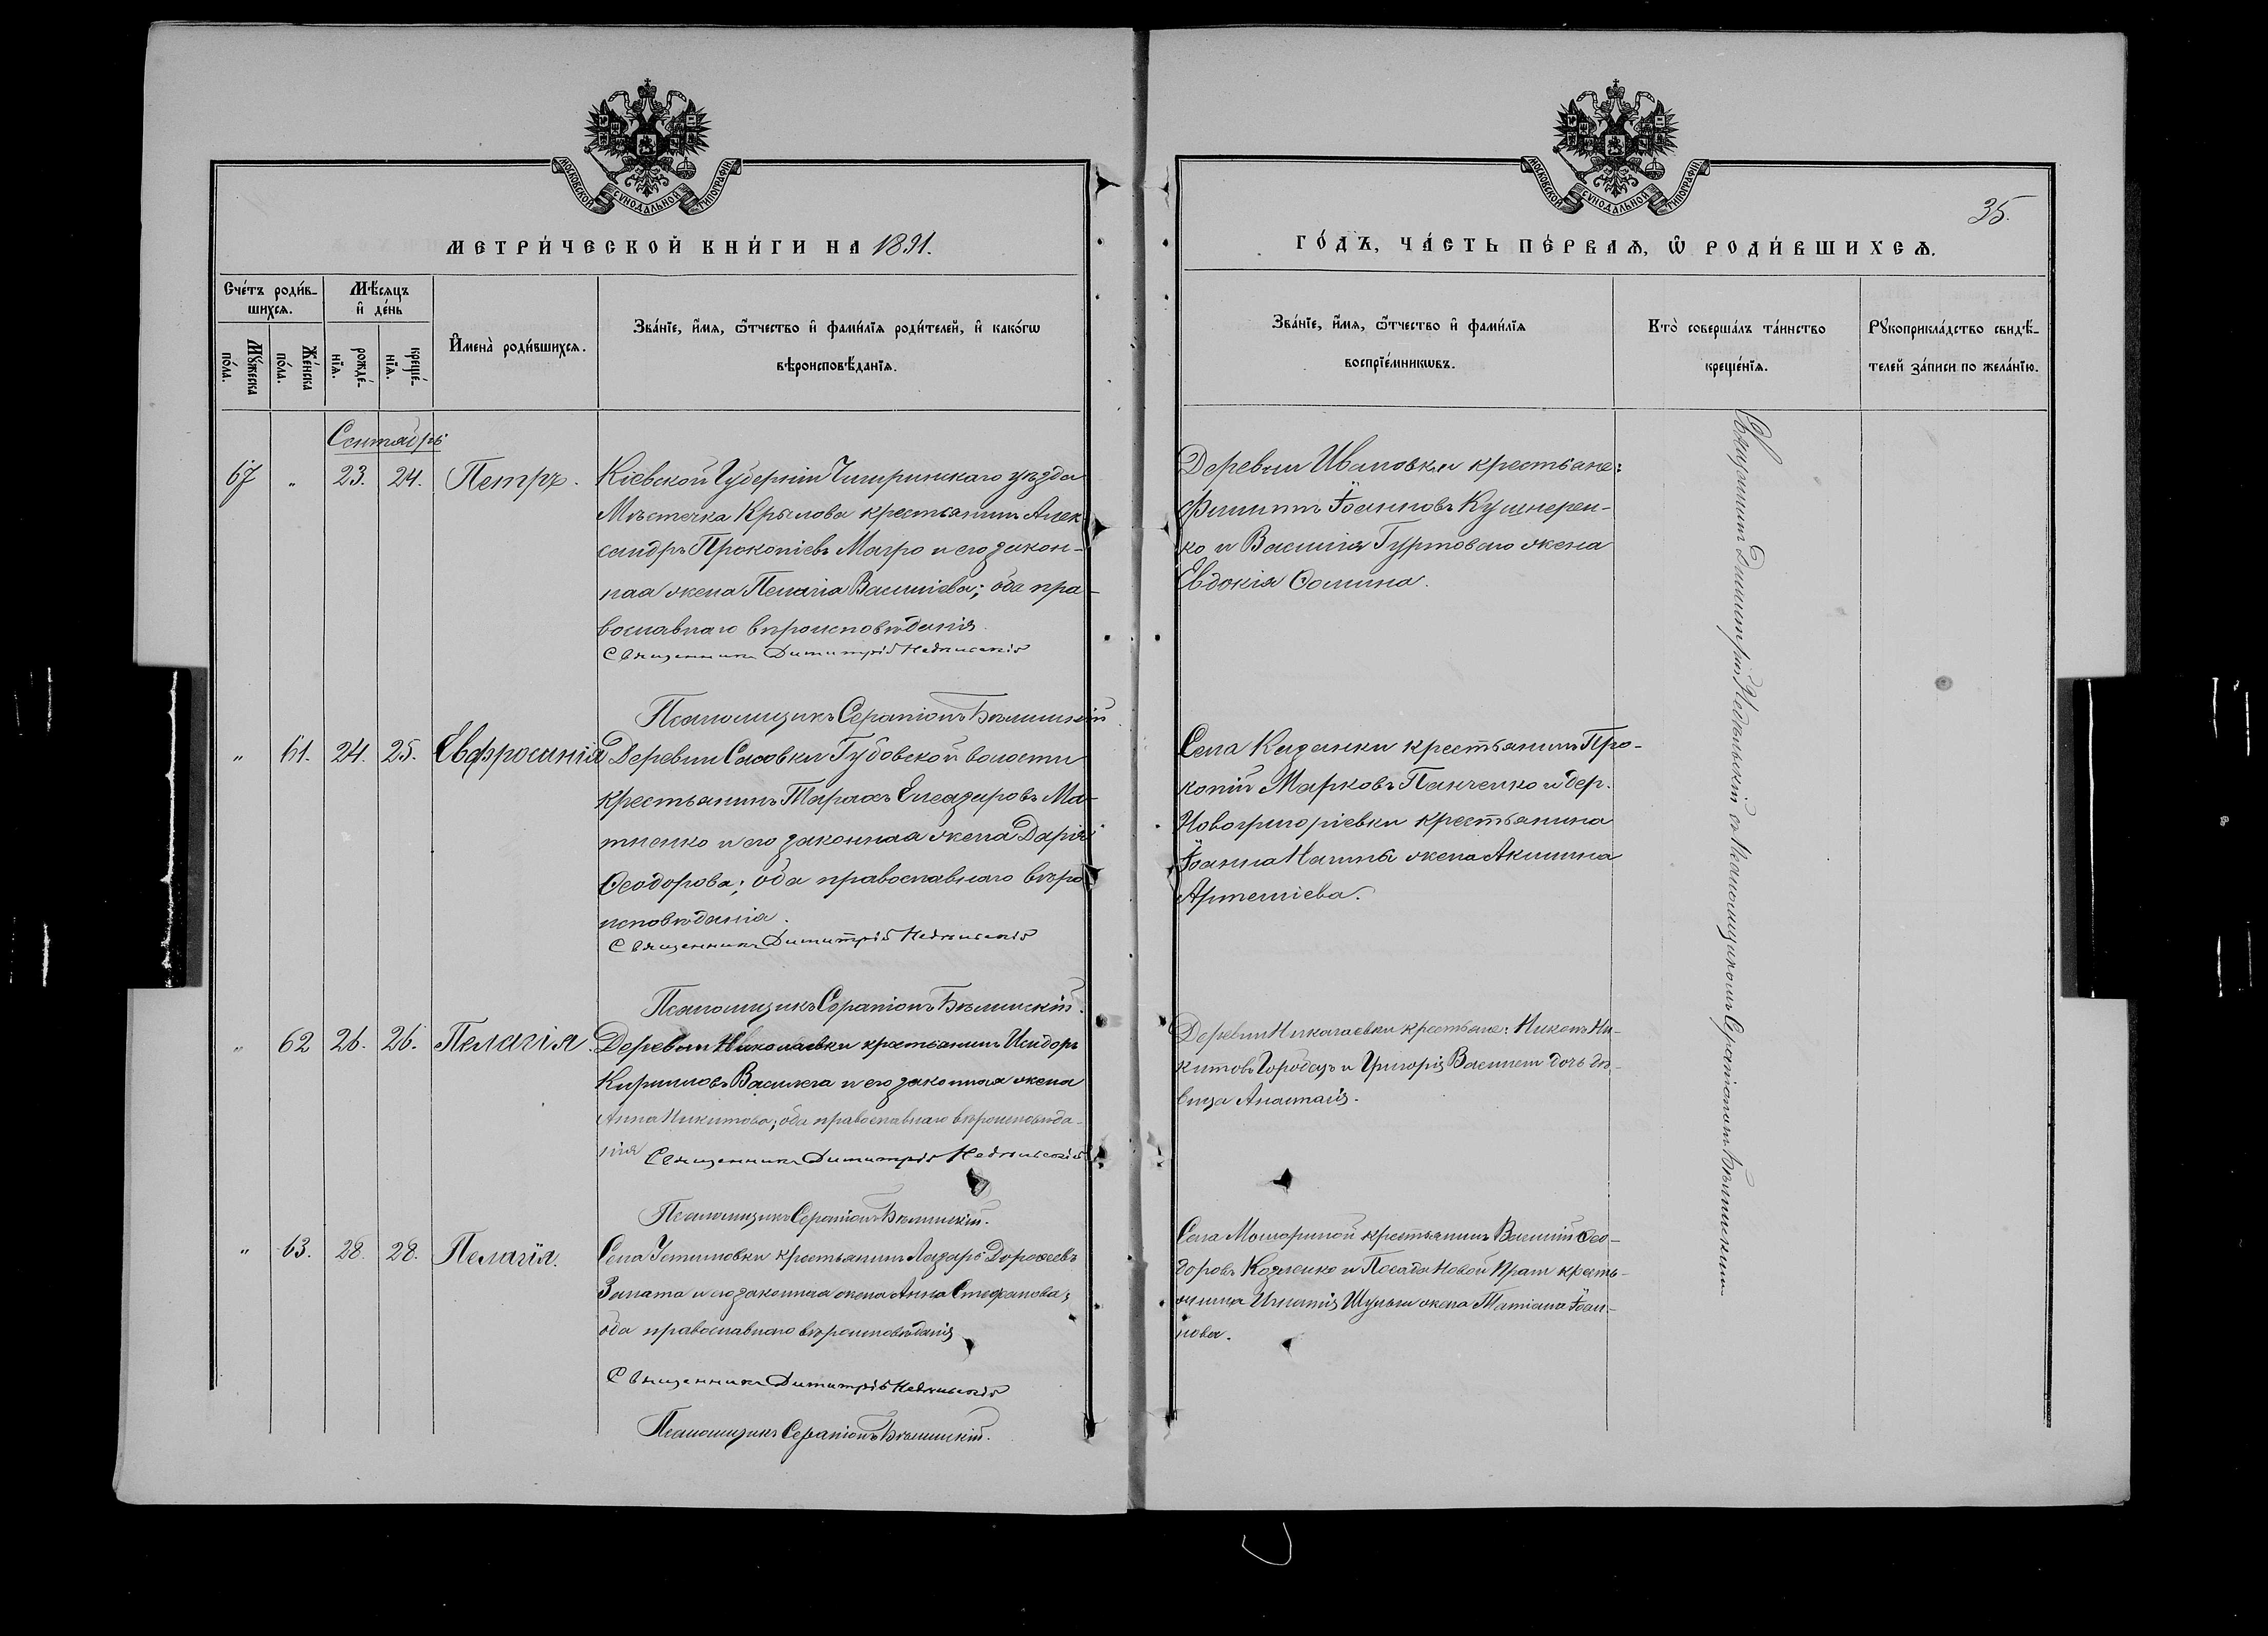 МОСКОВСКОЙ СѴНОДАЛЬНОЙ ТИПОГРАФІИ
МЕТРИ́ЧЕСКОЙ КНИ́ГИ НА 1891.
Сче́тъ роди́в-
шихсѧ.
Мѣ́сѧцъ
и҆ де́нь
Мꙋ́жеска
по́ла.
Же́нска
по́ла.
рожде́-
нїѧ.
креще́-
нїѧ.
И҆мена̀ роди́вшихсѧ.
Зва́нїе, и҆́мѧ, ѻ҆́тчество и҆ фами́лїѧ роди́телей, и҆ како́гѡ
вѣроисповѣ́данїѧ.
Сентябрь
67 " 23. 24. Петръ.
Кіевской Губерніи Чигиринскаго уѣзда
Мѣстечка Крылова крестьянинъ Алек
сандръ Прокопіевъ Магро и его закон-
ная жена Пелагія Василіева; оба пра-
вославнаго вѣроисповѣданія.
Священникъ Димитрій Недѣльскій
Псаломщикъ Серапіонъ Бѣлинскій
" 61. 24. 25. Евфросинія
Деревни Сасовки Губовской волости
крестьянинъ Тарасъ Елеазаровъ Ма-
тненко и его законная жена Дарія
Ѳеодорова; оба православнаго вѣро
исповѣданія.
Священникъ Димитрій Недѣльскій
Псаломщикъ Серапіонъ Бѣлинскій.
" 62 26. 26. Пелагія.
Деревни Николаевки крестьянинъ Исидоръ
Кирилловъ Василега и его законная жена
Анна Никитова; оба православнаго вѣроисповѣда-
нія Священникъ Димитрій Недѣльскій
Псаломщикъ Серапіонъ Бѣлинскій.
" 63. 28. 28. Пелагія.
Села Устиновки крестьянинъ Лазарь Дороѳеевъ
Заната и его законная жена Анна Стефанова;
оба православнаго вѣроисповѣданія
Священникъ Димитрій Недѣльскій
Псаломщикъ Серапіонъ Бѣлинскій.
МОСКОВСКОЙ СѴНОДАЛЬНОЙ ТИПОГРАФІИ
35.
ГО́ДЪ, ЧА́СТЬ ПЕ́РВАѦ, Ѡ҆ РОДИ́ВШИХСѦ.
Зва́нїе, и҆́мѧ, ѻ҆́тчество и҆ фами́лїѧ
воспрїе́мникѡвъ.
Кто̀ соверша́лъ та́инство
креще́нїѧ.
Рꙋкоприкла́дство свидѣ́-
телей за́писи по жела́нїю.
Деревни Ивановки крестьяне:
Филиппъ Іоанновъ Кушнерен-
ко и Василія Гуртоваго жена
Евдокія Ѳомина.
Села Казанки крестьянинъ Про-
копій Марковъ Панченко и дер.
Новогригоріевки крестьянина
Іоанна Нагины жена Акилина
Артеміева.
Деревни Николаевки крестьяне: Никонъ Ни-
китовъ Городецъ и Григорія Василеги дочь дѣ-
вица Анастасія.
Села Мошориной крестьянинъ Василій Ѳео-
доровъ Козленко и Посада Новой Праги кресть-
янина Игнатія Шульги жена Татіана Іоан-
нова.
Священникъ Димитрій Недѣльскій съ Псаломщикомъ Серапіономъ Бѣлинскимъ